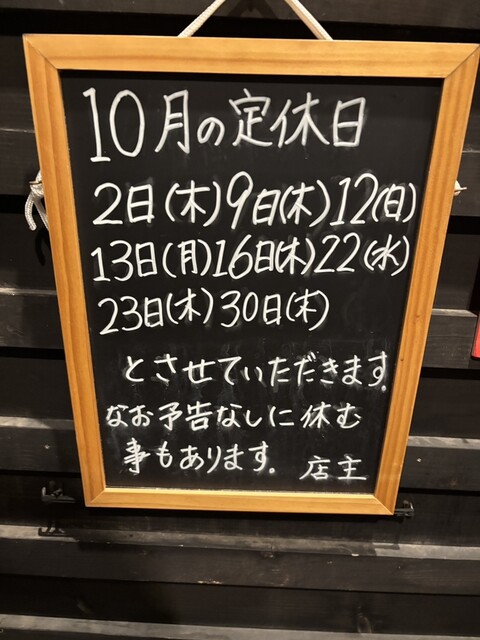 10月の定休日
2日(木)9日(木)12(日)
13日(月)16日(木)22(水)
23日(木)30日(木)
とさせていただきます.
なお予告なしに休む
事もあります. 店主